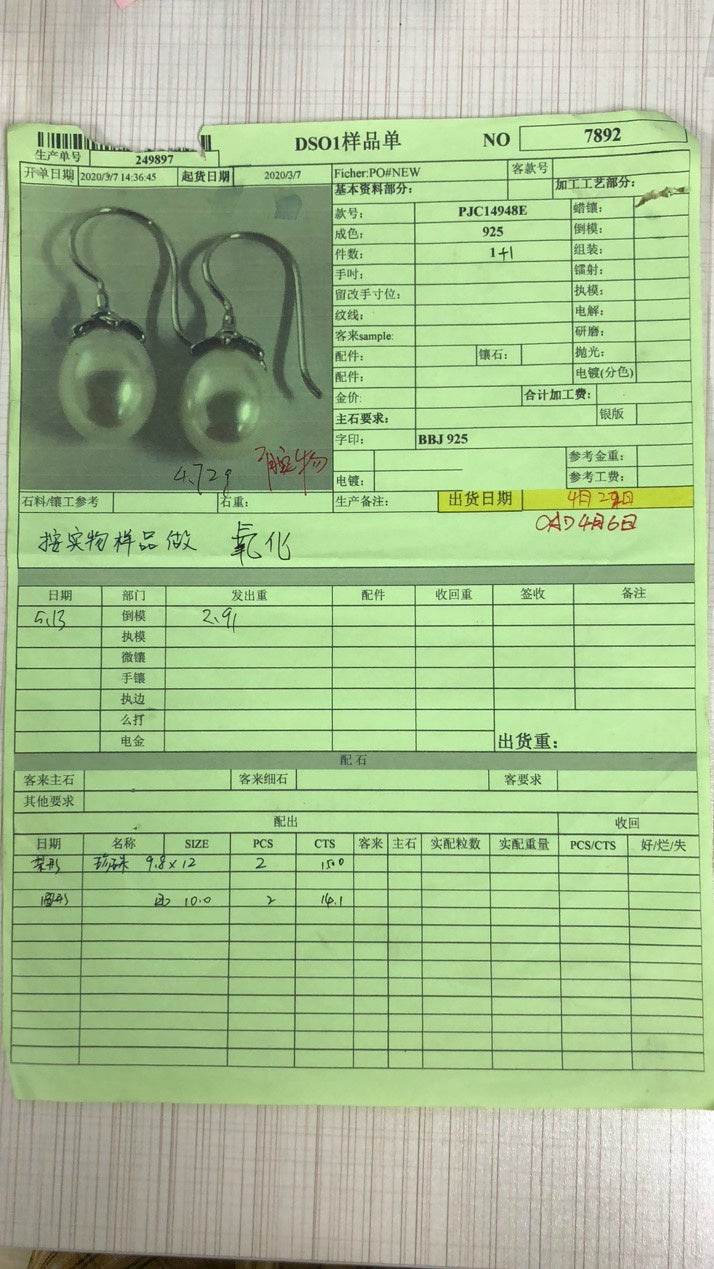 DSO1样品单 NO 7892
生产单号 249897
开单日期 2020/3/7 14:36:45 起货日期 2020/3/7 Ficher:PO#NEW 客款号
基本资料部分: 加工工艺部分:
款号: PJC14948E 蜡镶:
成色: 925 倒模:
件数: 1+1 组装:
手吋: 镭射:
留改手寸位: 执模:
纹线: 电解:
客来sample: 研磨:
配件: 镶石: 抛光:
配件: 电镀(分色)
金价: 合计加工费:
主石要求: 银版
字印: BBJ 925
参考金重:
电镀: 参考工费:
4.72g
石料/镶工参考 石重: 生产备注: 出货日期 4月29日
4月6日
按实物样品做 氧化
日期 部门 发出重 配件 收回重 签收 备注
5.13 倒模 2.91
执模
微镶
手镶
执边
么打
电金 出货重:
配石
客来主石 客来细石 客要求
其他要求
配出 收回
日期 名称 SIZE PCS CTS 客来 主石 实配粒数 实配重量 PCS/CTS 好/烂/失
梨形 珍珠 9.8x12 2 15.0
圆形 10.0 2 14.1